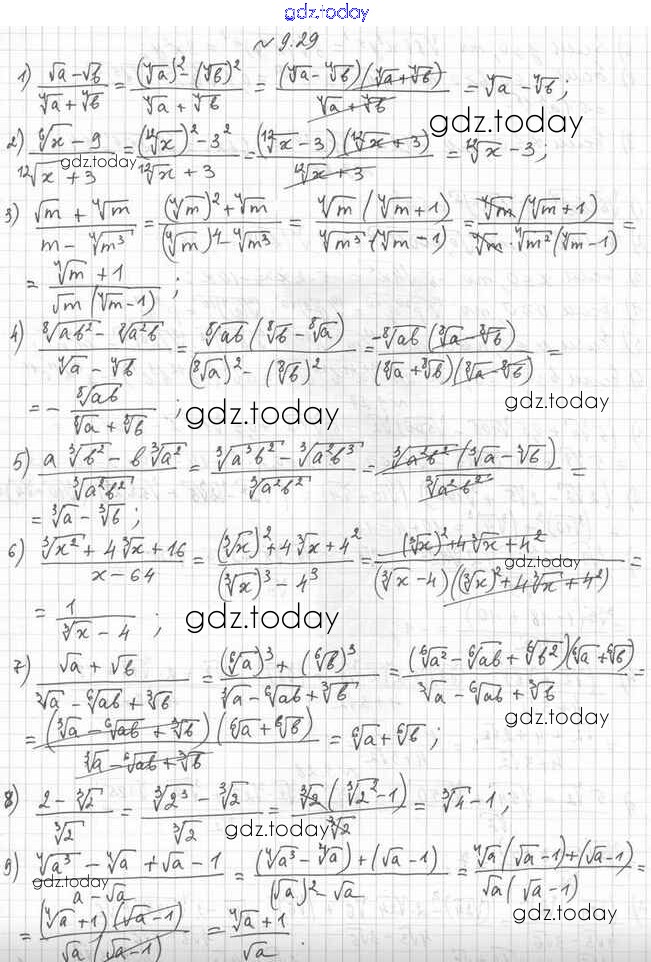 gdz.today
№ 9.29
1) (√a − √b)/(⁴√a + ⁴√b) = ((⁴√a)² − (⁴√b)²)/(⁴√a + ⁴√b) = ((⁴√a − ⁴√b)(⁴√a + ⁴√b))/(⁴√a + ⁴√b) = ⁴√a − ⁴√b;
gdz.today
2) (⁶√x − 9)/(¹²√x + 3) = ((¹²√x)² − 3²)/(¹²√x + 3) = ((¹²√x − 3)(¹²√x + 3))/(¹²√x + 3) = ¹²√x − 3;
gdz.today
3) (√m + ⁴√m)/(m − ⁴√m³) = ((⁴√m)² + ⁴√m)/((⁴√m)⁴ − ⁴√m³) = (⁴√m (⁴√m + 1))/(⁴√m³ (⁴√m − 1)) = (⁴√m (⁴√m + 1))/(⁴√m · ⁴√m² (⁴√m − 1)) =
= (⁴√m + 1)/(√m (⁴√m − 1));
4) (⁸√ab² − ⁸√a²b)/(⁴√a − ⁴√b) = (⁸√ab (⁸√b − ⁸√a))/((⁸√a)² − (⁸√b)²) = (−⁸√ab (⁸√a − ⁸√b))/((⁸√a + ⁸√b)(⁸√a − ⁸√b)) =
gdz.today
= − ⁸√ab/(⁸√a + ⁸√b);
gdz.today
5) (a ³√b² − b ³√a²)/³√a²b² = (³√a³b² − ³√a²b³)/³√a²b² = (³√a²b² (³√a − ³√b))/³√a²b² =
= ³√a − ³√b;
6) (³√x² + 4 ³√x + 16)/(x − 64) = ((³√x)² + 4 ³√x + 4²)/((³√x)³ − 4³) = ((³√x)² + 4 ³√x + 4²)/((³√x − 4)((³√x)² + 4 ³√x + 4²)) =
gdz.today
= 1/(³√x − 4);
gdz.today
7) (√a + √b)/(³√a − ⁶√ab + ³√b) = ((⁶√a)³ + (⁶√b)³)/(³√a − ⁶√ab + ³√b) = ((⁶√a² − ⁶√ab + ⁶√b²)(⁶√a + ⁶√b))/(³√a − ⁶√ab + ³√b) =
gdz.today
= ((³√a − ⁶√ab + ³√b)(⁶√a + ⁶√b))/(³√a − ⁶√ab + ³√b) = ⁶√a + ⁶√b;
8) (2 − ³√2)/³√2 = (³√2³ − ³√2)/³√2 = (³√2 (³√2² − 1))/³√2 = ³√4 − 1;
gdz.today
9) (⁴√a³ − ⁴√a + √a − 1)/(a − √a) = ((⁴√a³ − ⁴√a) + (√a − 1))/((√a)² − √a) = (⁴√a (√a − 1) + (√a − 1))/(√a (√a − 1)) =
gdz.today
gdz.today
= ((⁴√a + 1)(√a − 1))/(√a (√a − 1)) = (⁴√a + 1)/√a.